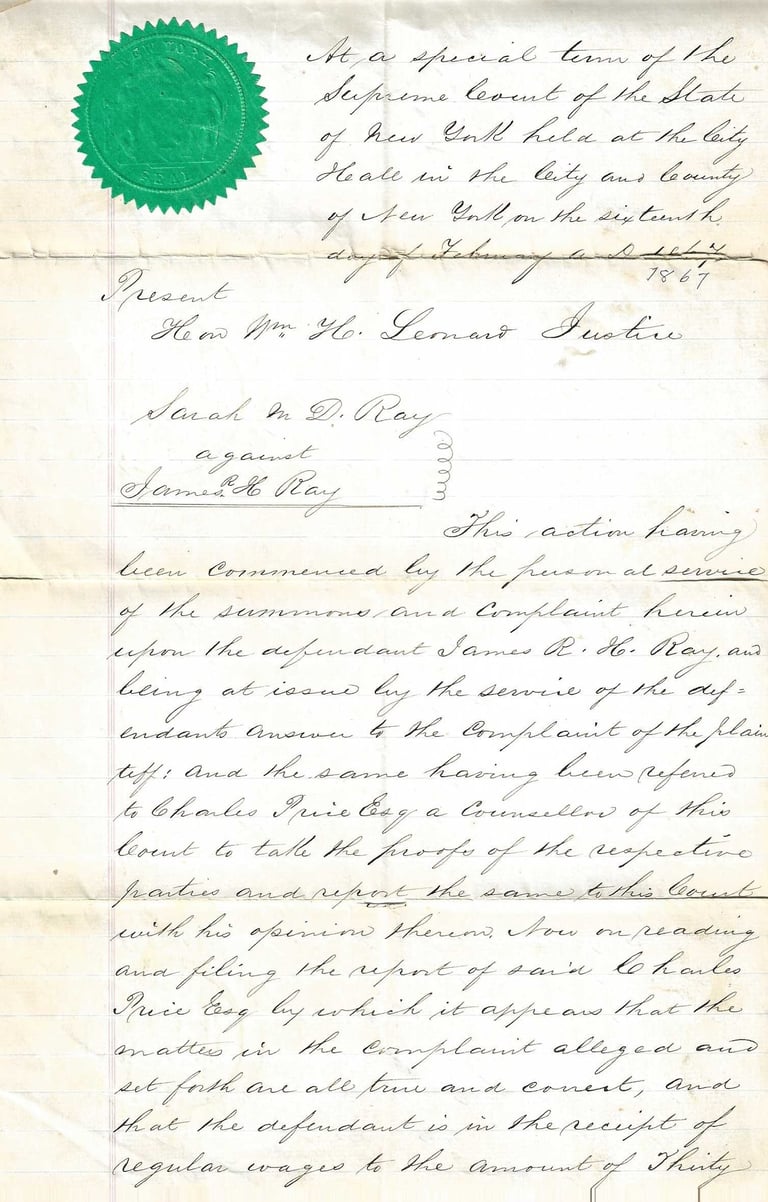 NEW YORK
SEAL
At a special term of the
Supreme Court of the State
of New York held at the City
Hall in the City and County
of New York on the sixteenth
day of February A D 1867
1867
Present
Hon Wm H. Leonard Justice
Sarah M D. Ray
against
James R H Ray
This action having
been commenced by the personal service
of the summons and complaint herein
upon the defendant James R. H. Ray, and
being at issue by the service of the def=
endants answer to the complaint of the plain
tiff: and the same having been referred
to Charles Price Esq a Counsellor of this
Court to take the proofs of the respective
parties and report the same to this Court
with his opinion thereon. Now on reading
and filing the report of said Charles
Price Esq by which it appears that the
matters in the complaint alleged and
set forth are all true and correct, and
that the defendant is in the receipt of
regular wages to the amount of Thirty